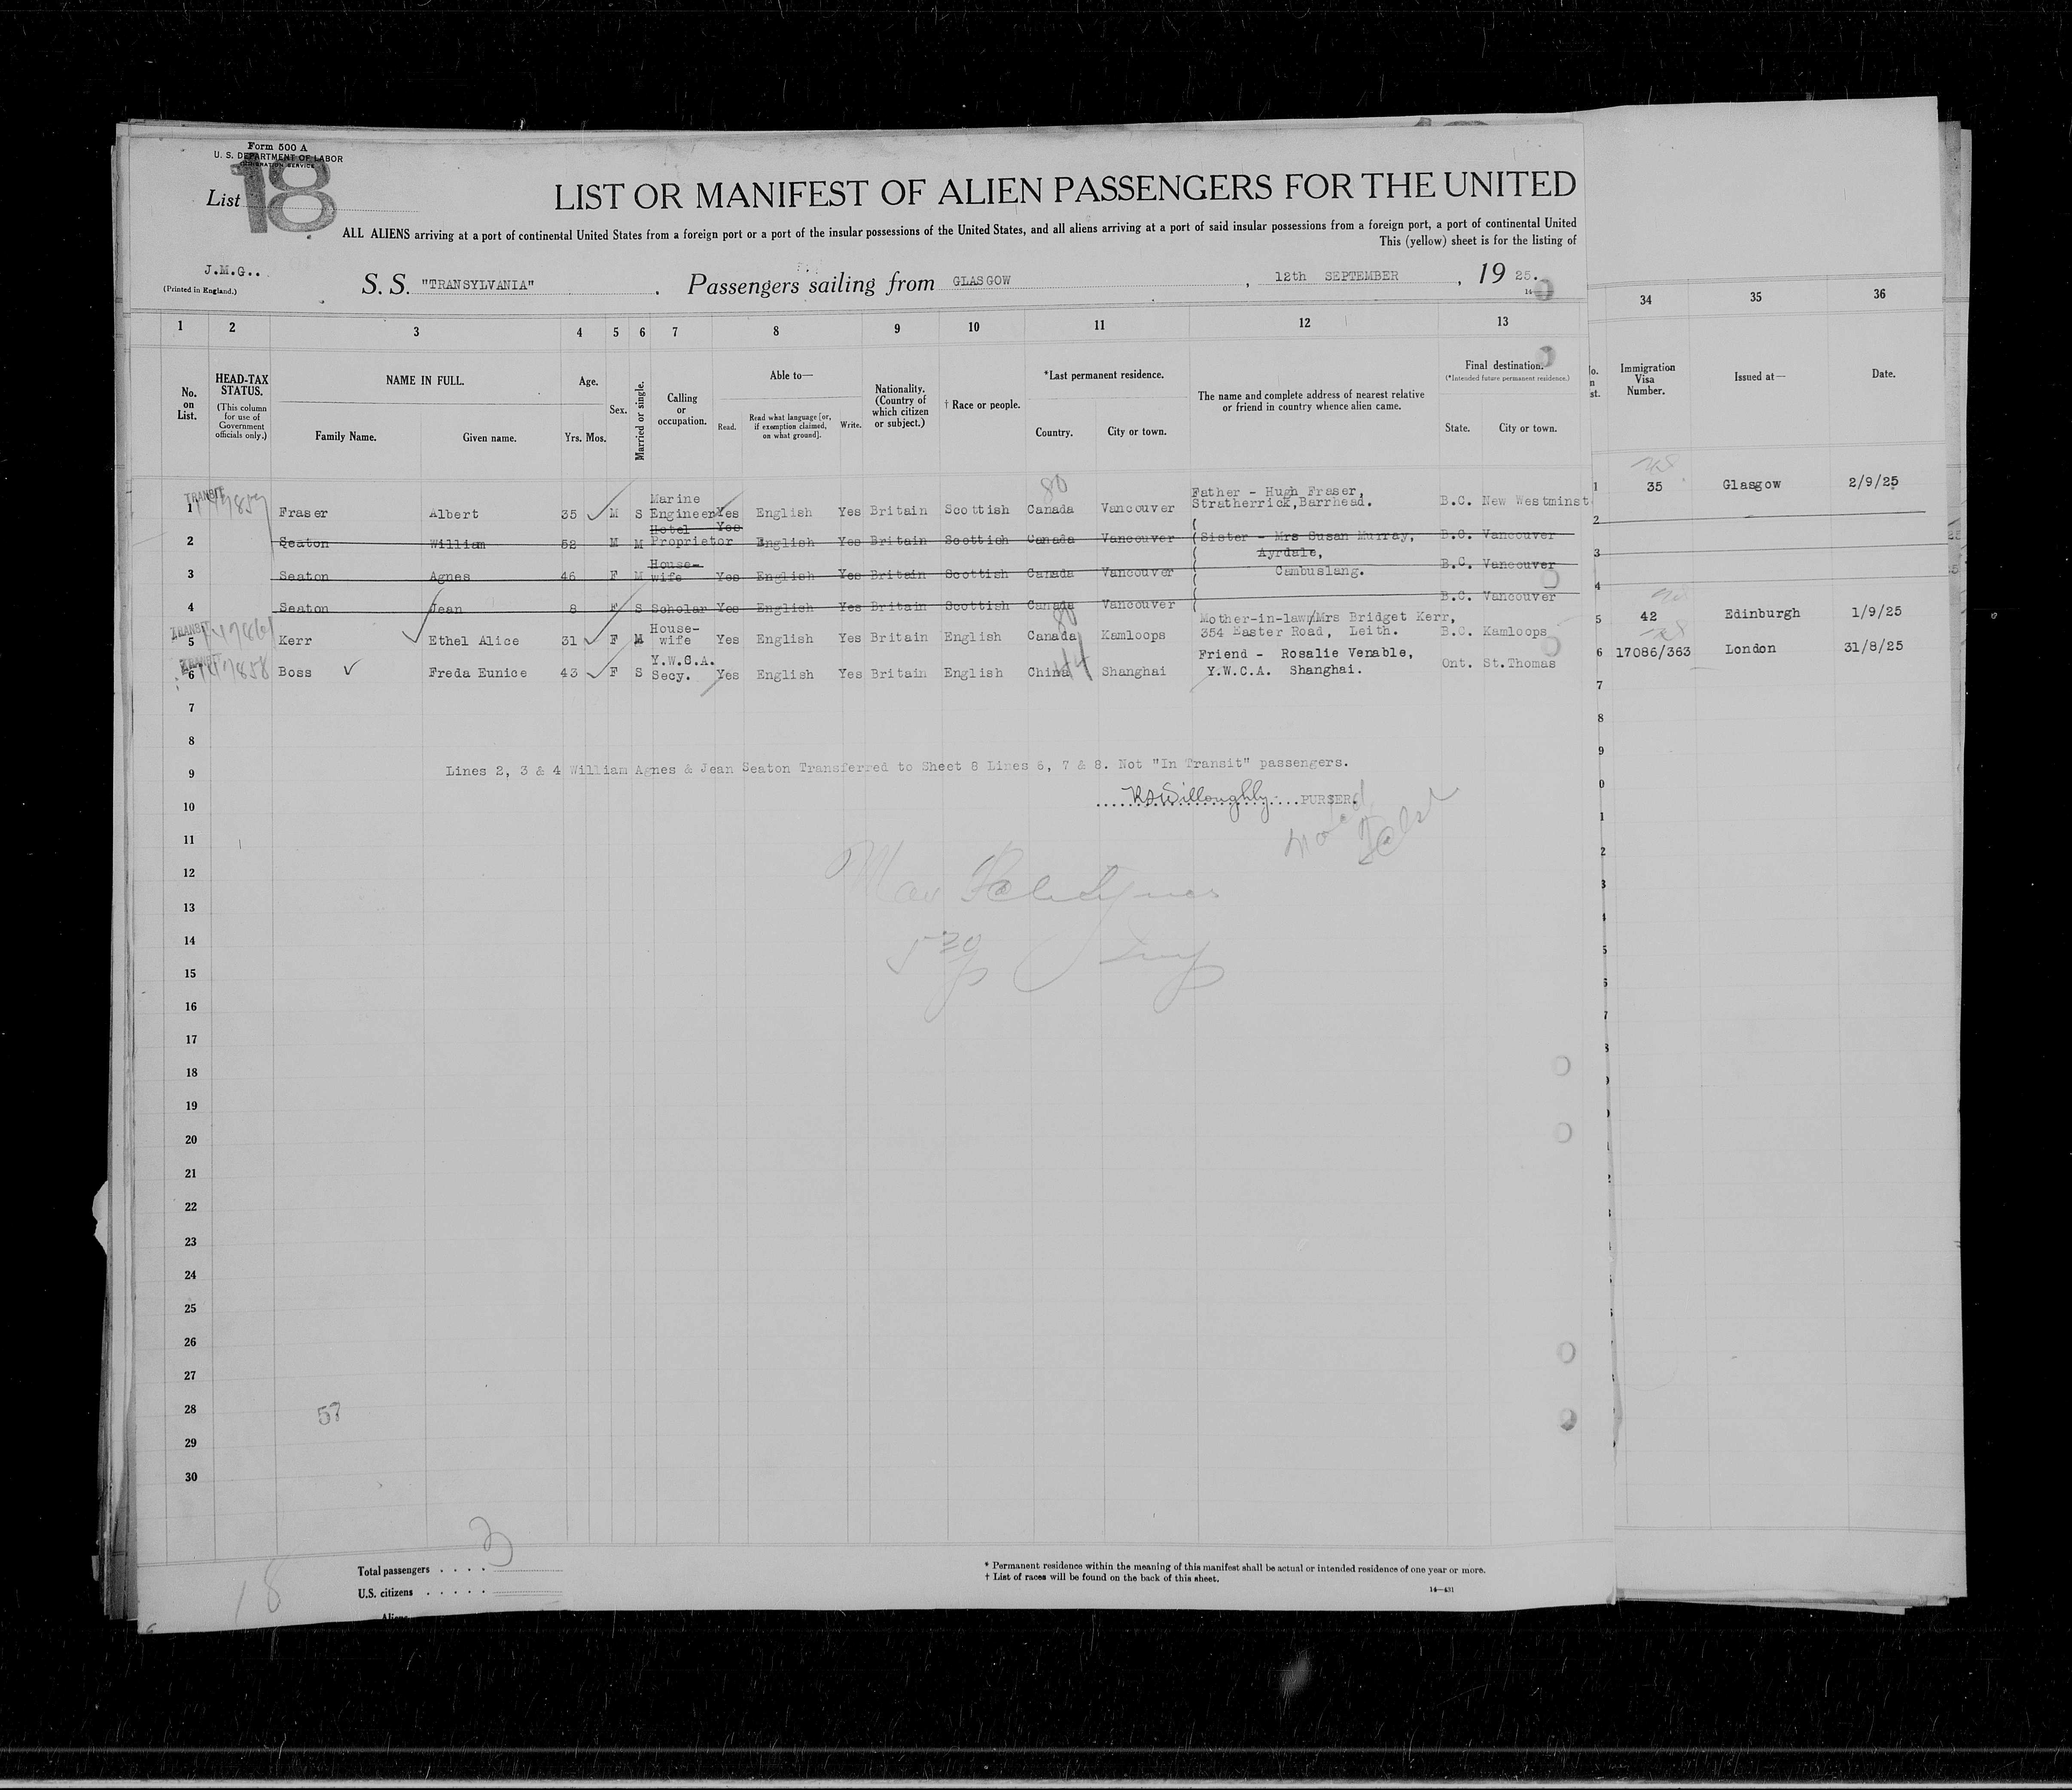 Form 500 A
U. S. DEPARTMENT OF LABOR
IMMIGRATION SERVICE
List 18
LIST OR MANIFEST OF ALIEN PASSENGERS FOR THE UNITED
ALL ALIENS arriving at a port of continental United States from a foreign port or a port of the insular possessions of the United States, and all aliens arriving at a port of said insular possessions from a foreign port, a port of continental United
This (yellow) sheet is for the listing of
J.M.G..
(Printed in England.)
S. S. "TRANSYLVANIA" . Passengers sailing from GLASGOW , 12th SEPTEMBER , 19 25.
1 2 3 4 5 6 7 8 9 10 11 12 13 34 35 36
No. on List.
HEAD-TAX STATUS.
(This column for use of Government officials only.)
NAME IN FULL.
Family Name. Given name.
Age.
Yrs. Mos.
Sex.
Married or single.
Calling or occupation.
Able to—
Read. Read what language [or, if exemption claimed, on what ground]. Write.
Nationality. (Country of which citizen or subject.)
† Race or people.
*Last permanent residence.
Country. City or town.
The name and complete address of nearest relative or friend in country whence alien came.
Final destination.
(*Intended future permanent residence.)
State. City or town.
Immigration Visa Number.
Issued at—
Date.
TRANSIT
1 Fraser Albert 35 M S Marine Engineer Yes English Yes Britain Scottish Canada Vancouver Father - Hugh Fraser, Stratherrick,Barrhead. B.C. New Westminst 1 35 Glasgow 2/9/25
2 Seaton William 52 M M Hotel Proprietor Yes English Yes Britain Scottish Canada Vancouver (Sister - Mrs Susan Murray, B.C. Vancouver 2
Ayrdale,
3 Seaton Agnes 46 F M House-wife Yes English Yes Britain Scottish Canada Vancouver Cambuslang. B.C. Vancouver 3
4 Seaton Jean 8 F S Scholar Yes English Yes Britain Scottish Canada Vancouver B.C. Vancouver 4
TRANSIT
5 Kerr Ethel Alice 31 F M House-wife Yes English Yes Britain English Canada Kamloops Mother-in-law/Mrs Bridget Kerr, 354 Easter Road, Leith. B.C. Kamloops 5 42 Edinburgh 1/9/25
TRANSIT
6 Boss Freda Eunice 43 F S Y.W.C.A. Secy. Yes English Yes Britain English China Shanghai Friend - Rosalie Venable, Y.W.C.A. Shanghai. Ont. St.Thomas 6 17086/363 London 31/8/25
7
8
9 Lines 2, 3 & 4 William Agnes & Jean Seaton Transferred to Sheet 8 Lines 6, 7 & 8. Not "In Transit" passengers.
10 Willoughby PURSER.
11
12
13
14
15
16
17
18
19
20
21
22
23
24
25
26
27
28 57
29
30
18
Total passengers . . . . 3
U.S. citizens . . . . .
Aliens
* Permanent residence within the meaning of this manifest shall be actual or intended residence of one year or more.
† List of races will be found on the back of this sheet.
14—431